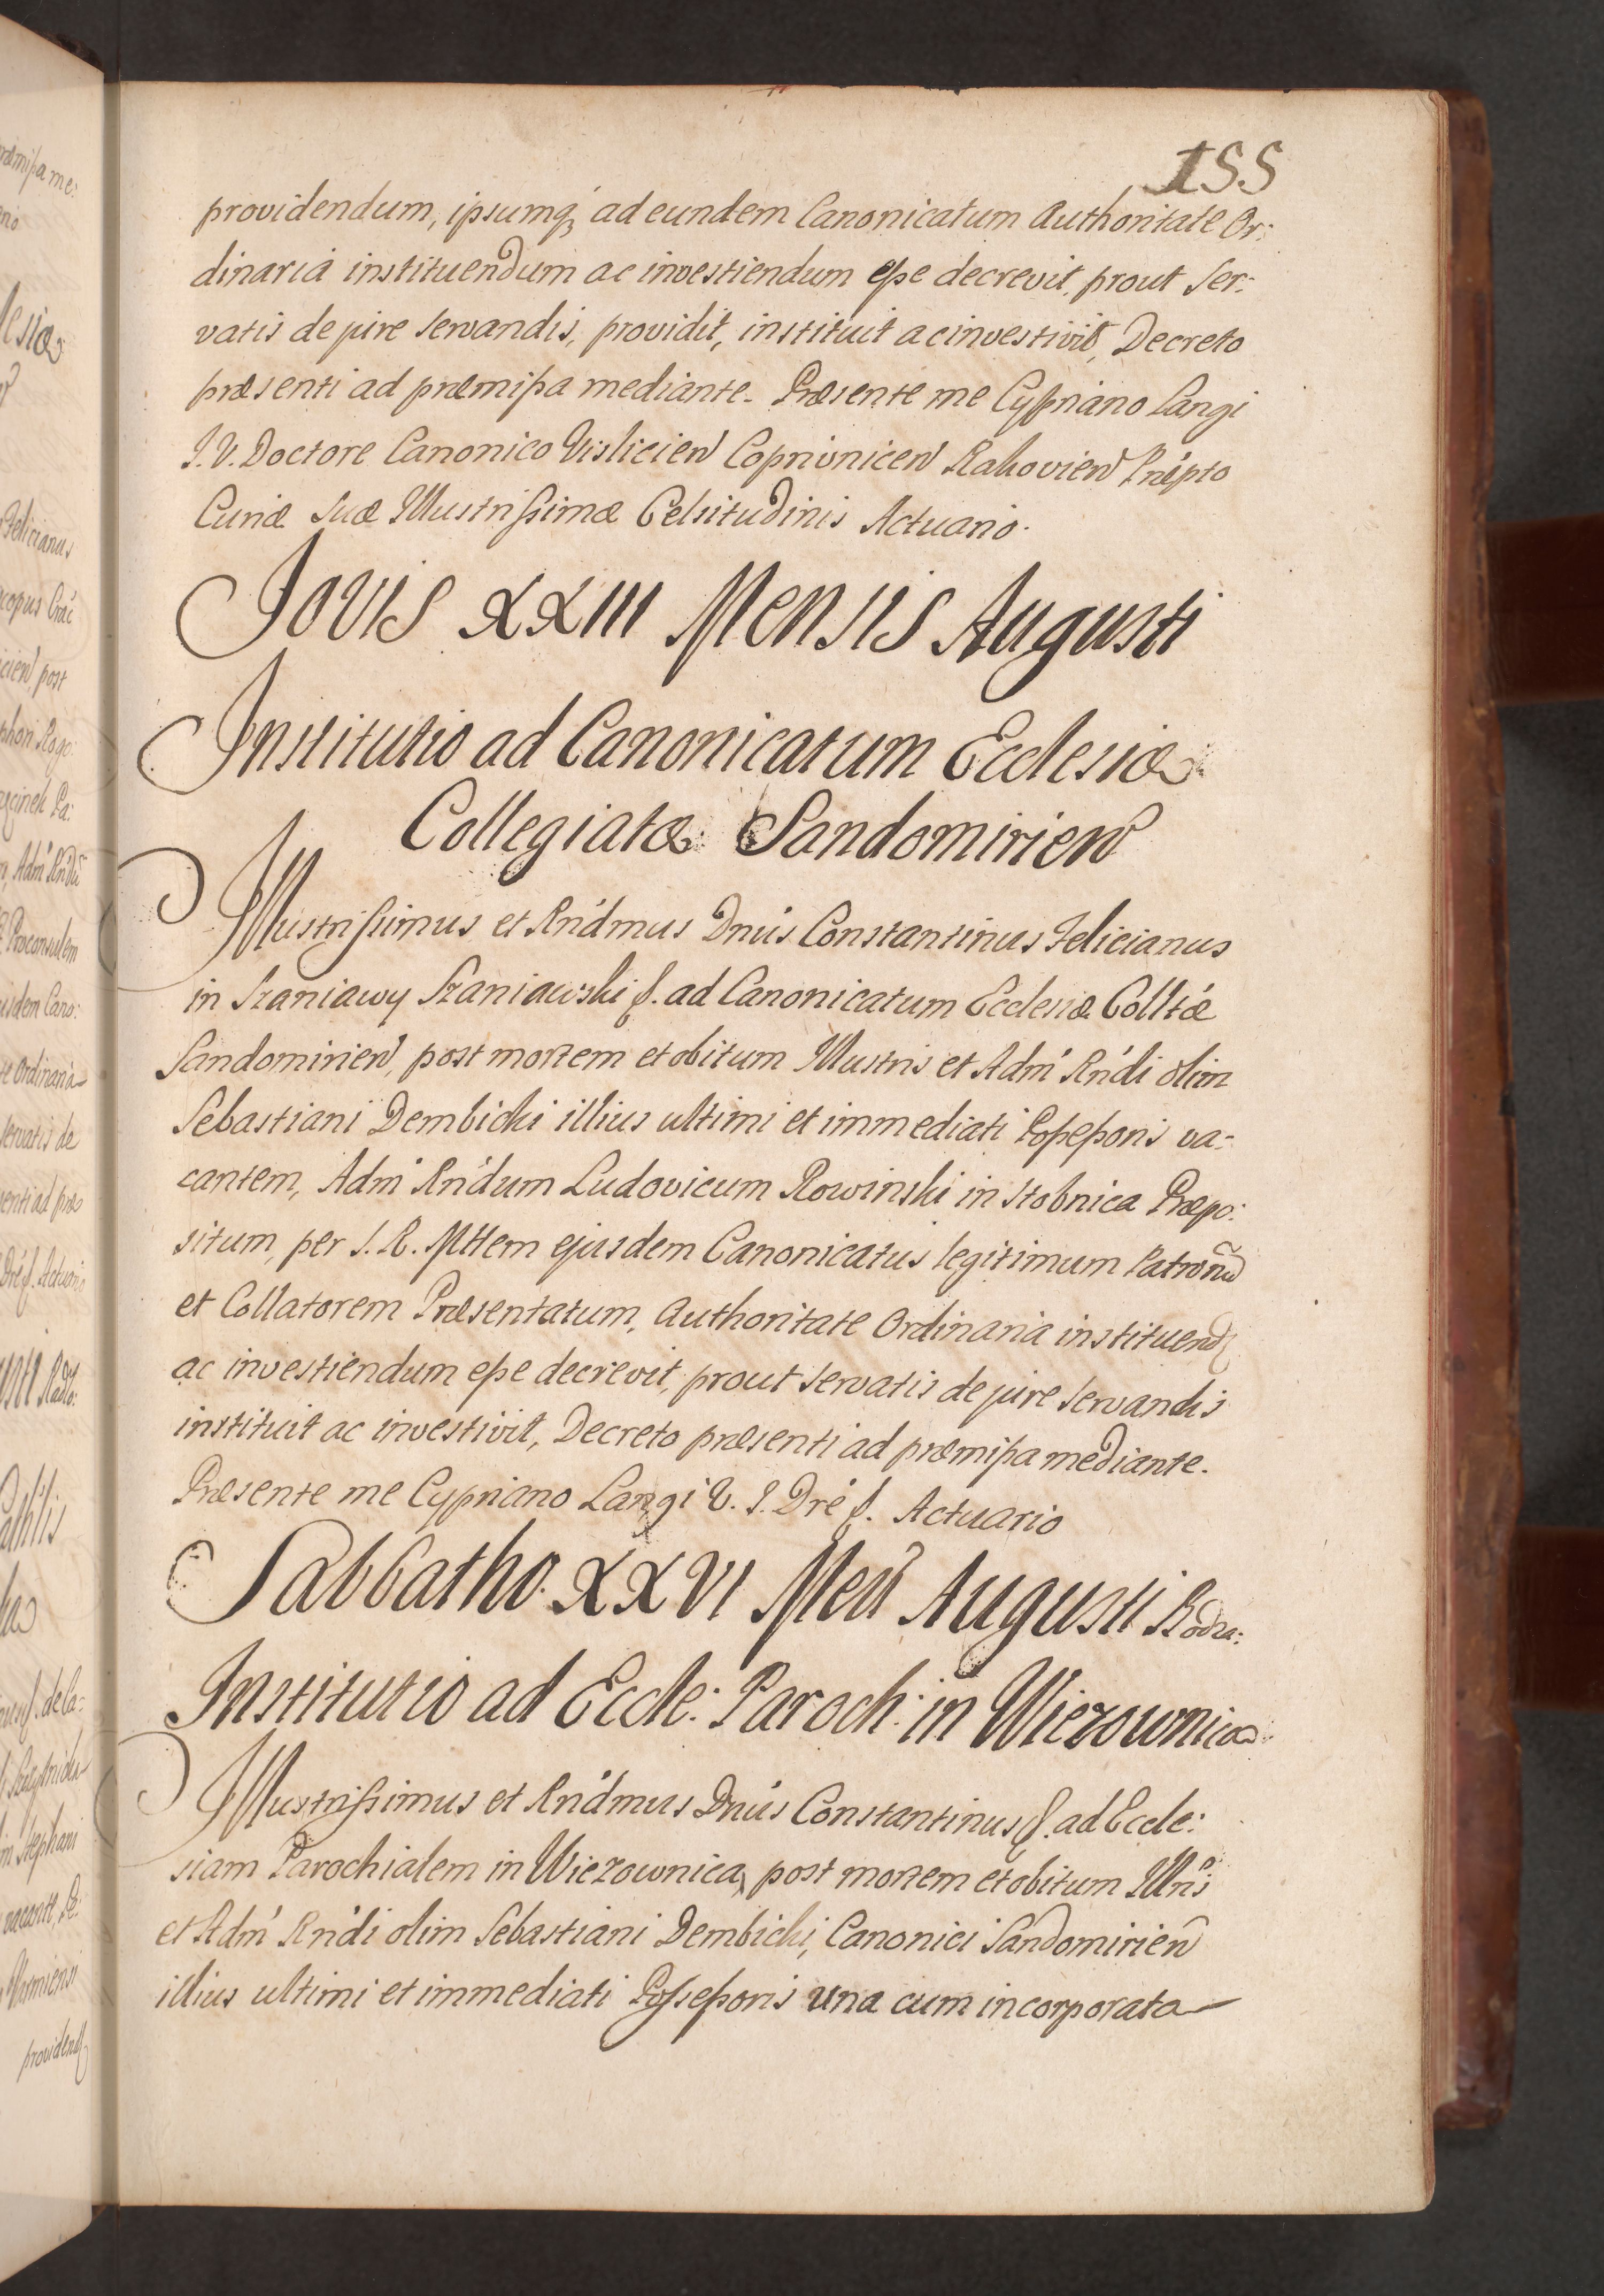 155
providendum, ipsumq́; ad eundem Canonicatum Authoritate Or:
dinariâ instituendum ac investiendum eſse decrevit, prout ser:
vatis de jure servandis, providit, instituit ac investivit, Decreto
præsenti ad præmiſsa mediante. Præsente me Cypriano Langi
I. V. Doctore Canonico Vislicien̄ Coprivnicen̄ Rakovien̄ Præpto
Curiæ Suæ Illustriſsimæ Celsitudinis Actuario.
Jovis XXIII Mensis Augusti
Institutio ad Canonicatum Ecclesiæ
Collegiatæ Sandomirien̄
Illustriſsimus et Rńdmus Dnús Constantinus Felicianus
in Szaniawy Szaniawski ſ. ad Canonicatum Ecclesiæ Colltǽ
Sandomirien̄, post mortem et obitum Illustris et Adm̄ Rńdi olim
Sebastiani Dembicki illius ultimi et immediati Poſseſsoris va:
cantem, Adm̄ Rńdum Ludovicum Rowinski in Stobnica Præpo:
situm, per S. R. Mttem ejusdem Canonicatus legitimum Patronū
et Collatorem Præsentatum, Authoritate Ordinaria instituend
ac investiendum eſse decrevit, prout servatis de jure servandis
instituit ac investivit, Decreto præsenti ad præmiſsa mediante.
Præsente me Cypriano Langi V. I. Dré ſ. Actuario
Sabbatho XXVI Men̄ Augusti
Institutio ad Eccle: Paroch: in Wiezownica
Illustriſsimus et Rńdmus Dnús Constantinus ſ. ad Eccle:
siam Parochialem in Wiezownica, post mortem et obitum Illris
et Adm̄ Rńdi olim Sebastiani Dembicki, Canonici Sandomirien̄
illius ultimi et immediati Poſseſsoris una cum incorporata